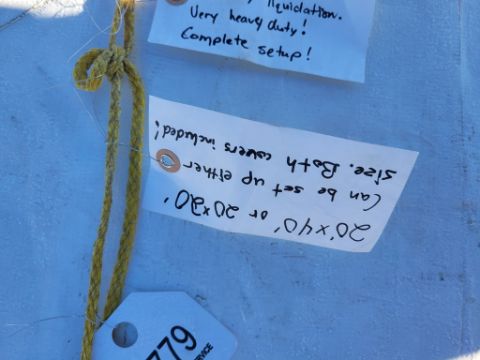 liquidation.
Very heavy duty!
Complete setup!
20'x40' or 20'x20'
Can be set up either
size. Both covers included!
779
SERVICE